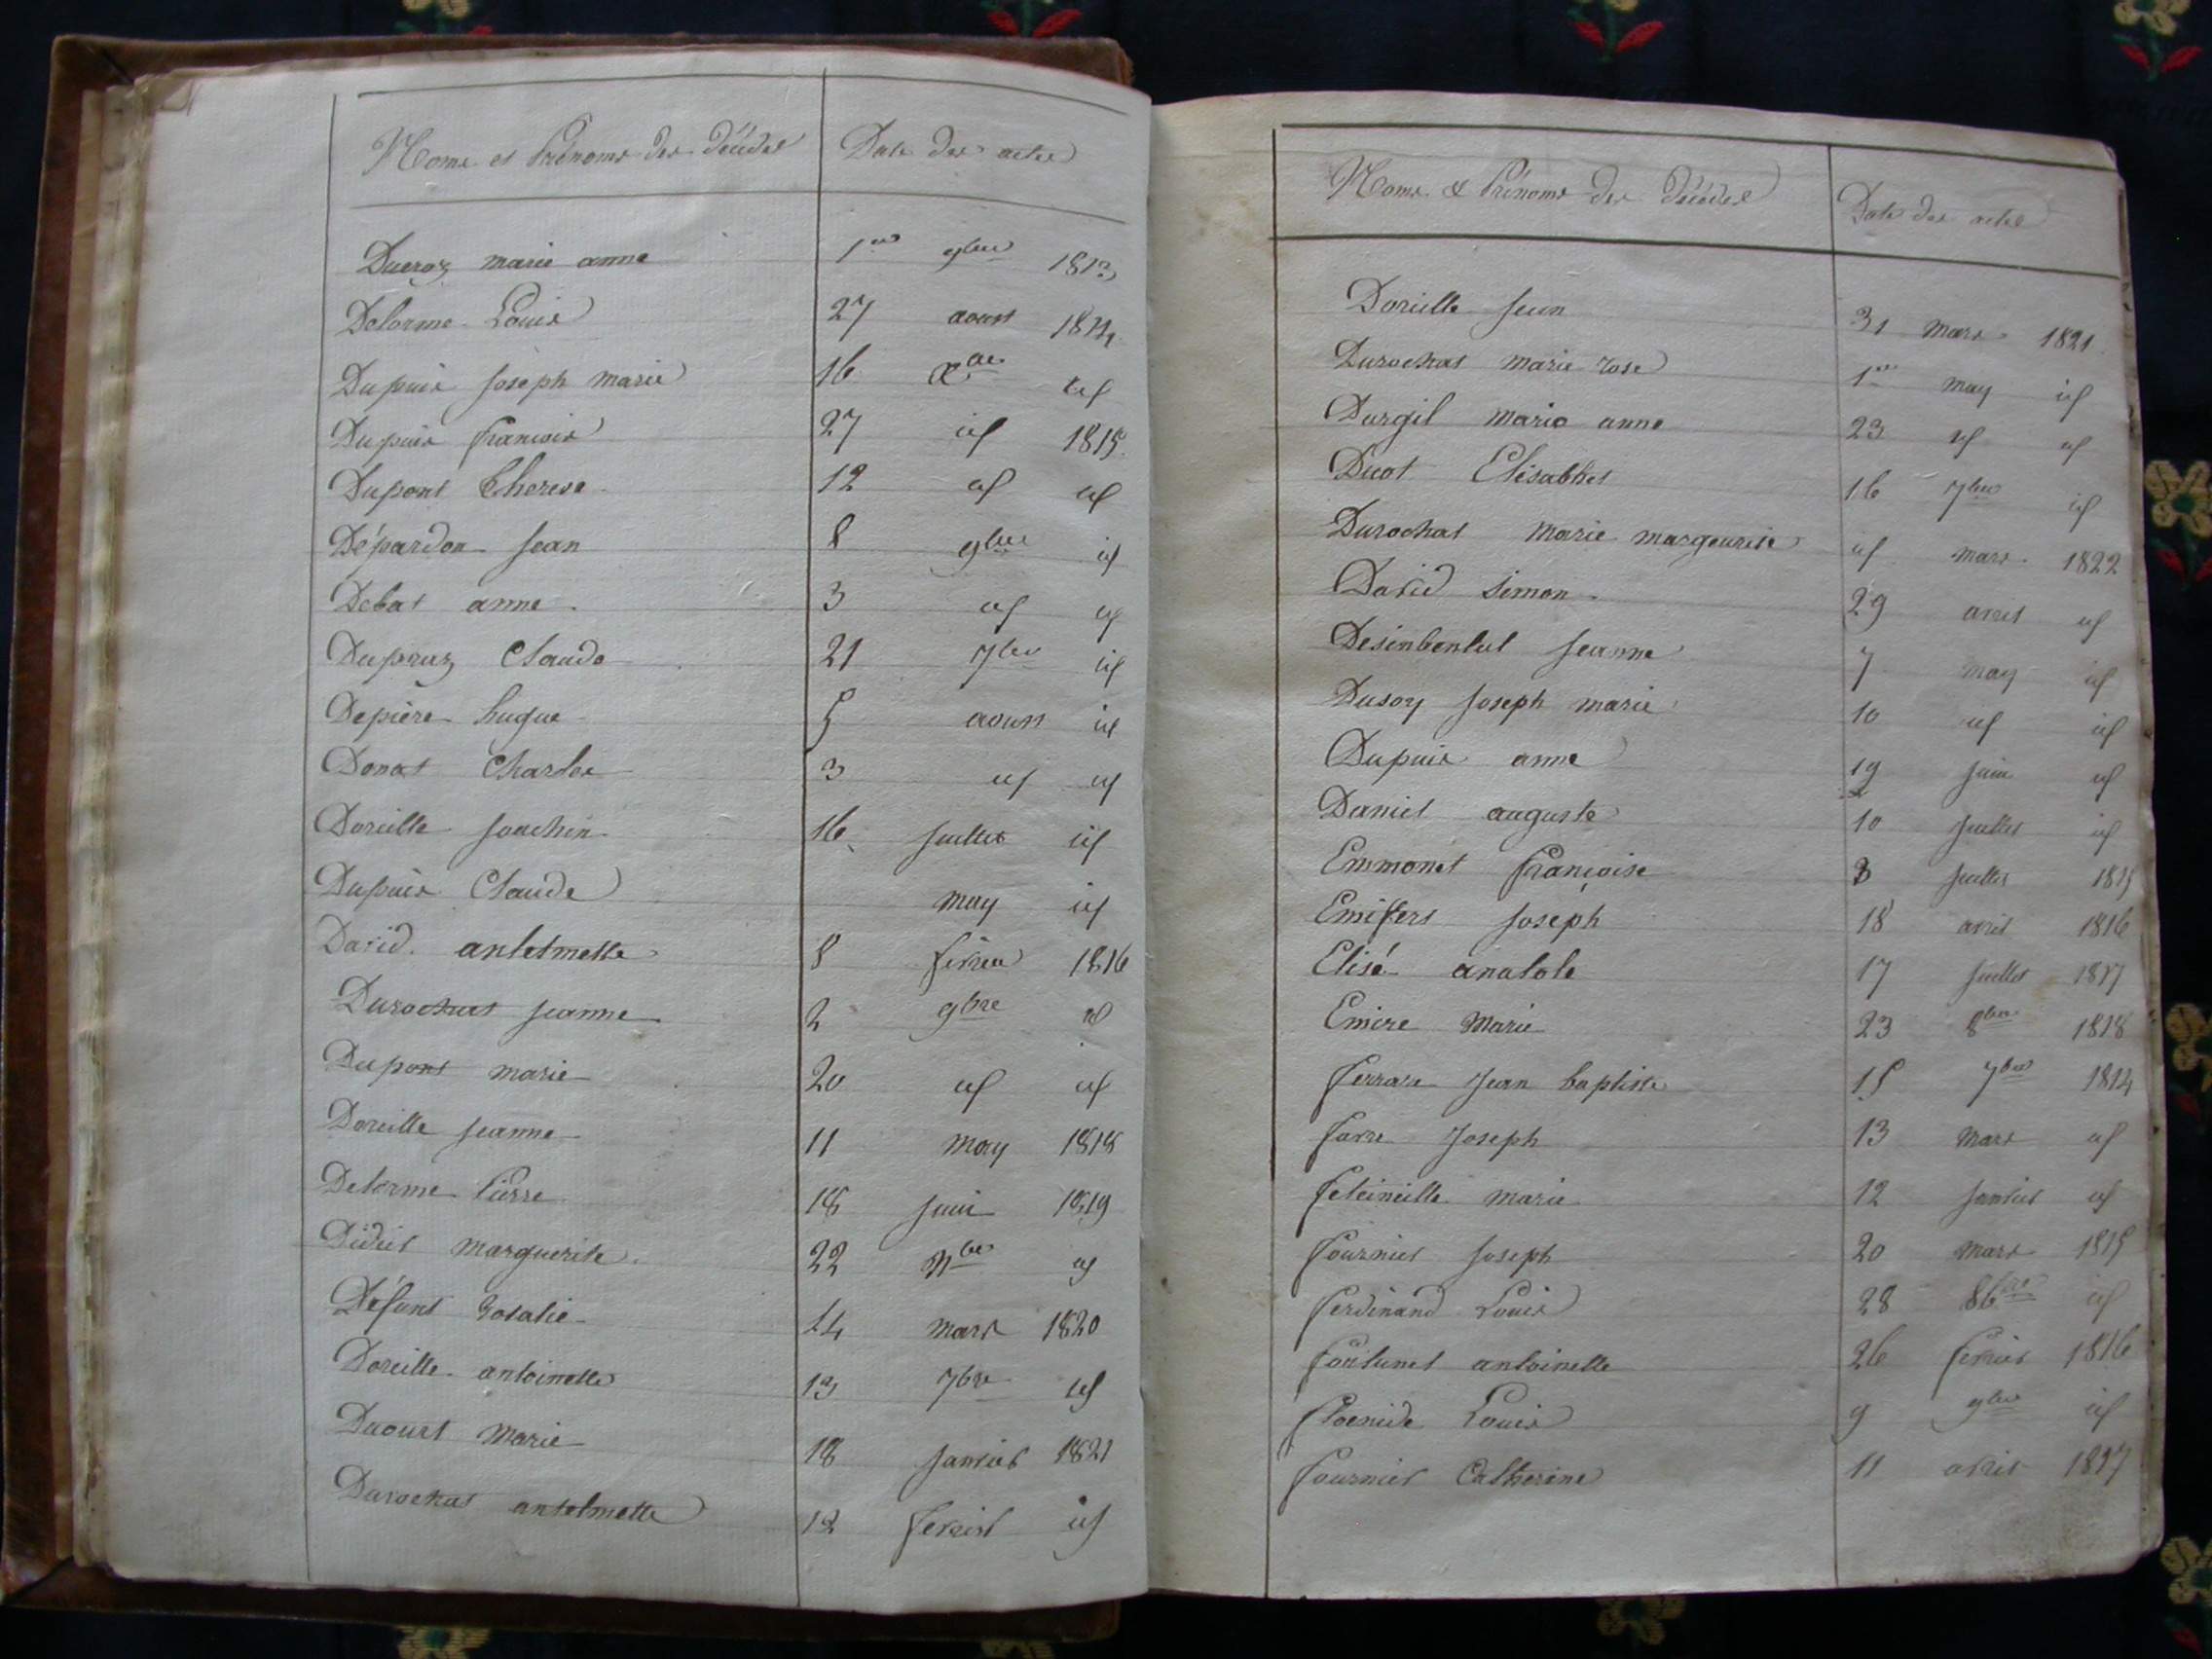 Noms et Prénoms des Décédés Date des actes
Ducroz marie anne 1er 9bre 1813
Delorme Louis 27 aoust 1814
Dupuis joseph marie 16 Xbre id
Dupuis francois 27 id 1815
Dupont therese 12 id id
Dépardon jean 8 9bre id
Debat anne 3 id id
Dupruz Claude 21 7bre id
Depière hugue 5 aoust id
Donat Charles 3 id id
Doreille joachin 16 juillet id
Dupuis Claude may id
David antelmette 8 fevrier 1816
Durochat jeanne 2 9bre id
Dupont marie 20 id id
Doreille jeanne 11 may 1818
Delorme Pierre 18 juin 1819
Didier marguerite 22 id
Défont rosalie 14 mars 1820
Doreille antoinette 13 7bre id
Ducurt Marie 18 janvier 1821
Durochat antelmette 12 fevrier id
Noms & Prénoms des Décédés Date des actes
Doreille jean 31 mars 1821
Durochat marie rose 1er may id
Durgil marie anne 23 id id
Ducot Elisabhet 16 7bre id
Durochat marie margeurite id mars 1822
David simon 29 avril id
jeanne 7 may id
Dusoy joseph marie 10 id id
Dupuis anne 19 juin id
Daniel auguste 10 juillet id
Emmonet françoise 3 juillet 1815
joseph 18 avril 1816
Elisé anatole 17 juillet 1817
Emere Marie 23 8bre 1818
ferrare Jean baptiste 15 7bre 1814
favre Joseph 13 mars id
marie 12 janvier id
fournier joseph 20 mars 1815
ferdinand Louis 28 8bre id
fontunet antoinette 26 fevrier 1816
Louis 9 9bre id
fournier Catherine 11 avril 1817